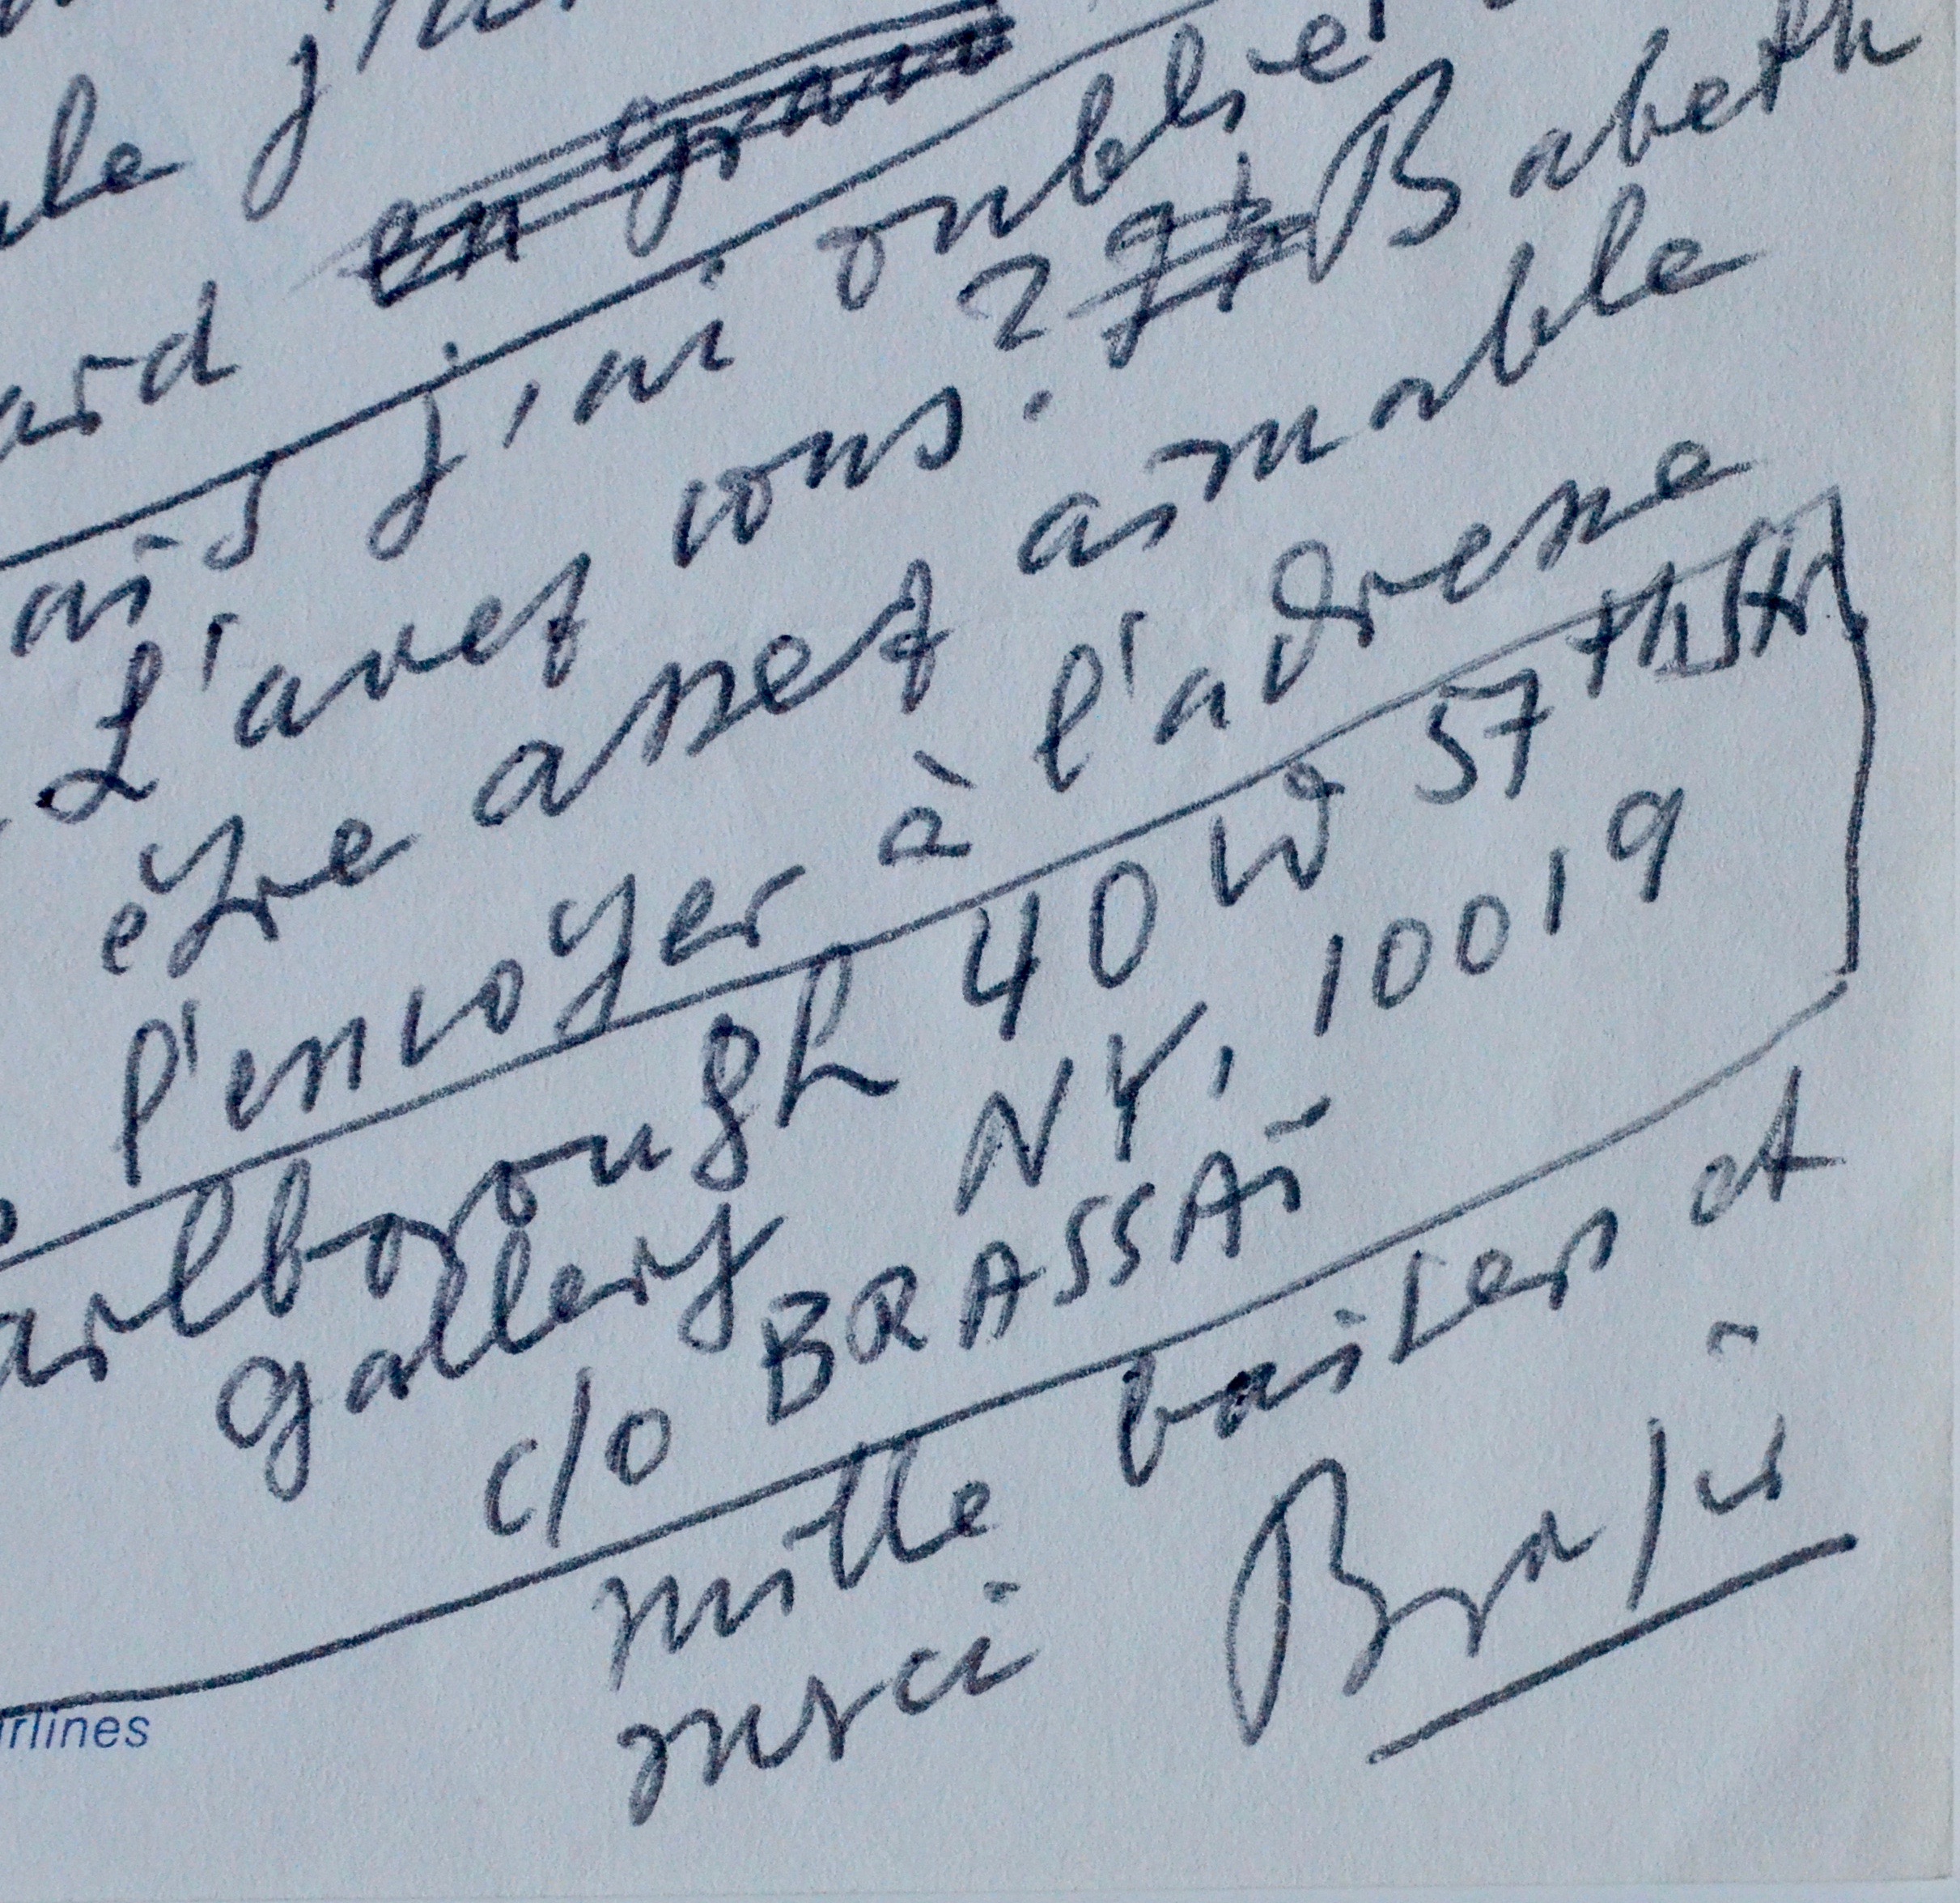 ard en gran
ais j'ai oublié
L'avez vous? Babeth
être assez aimable
l'envoyer à l'adresse
arlborough 40 W 57 th Str
gallery NY, 10019
c/o BRASSAÏ
mille baisers et
merci Brassaï
irlines